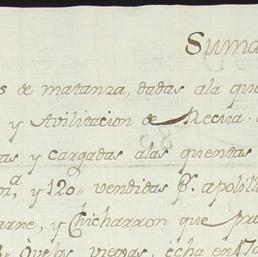 Suma
s de matanza, dadas ala que
y Avilitacion de Recua.
as y cargadas alas quentas
y 120 vendidas Pr. apolill
arne, y Chicharron que pro
Ovejas viejas, echa en 17